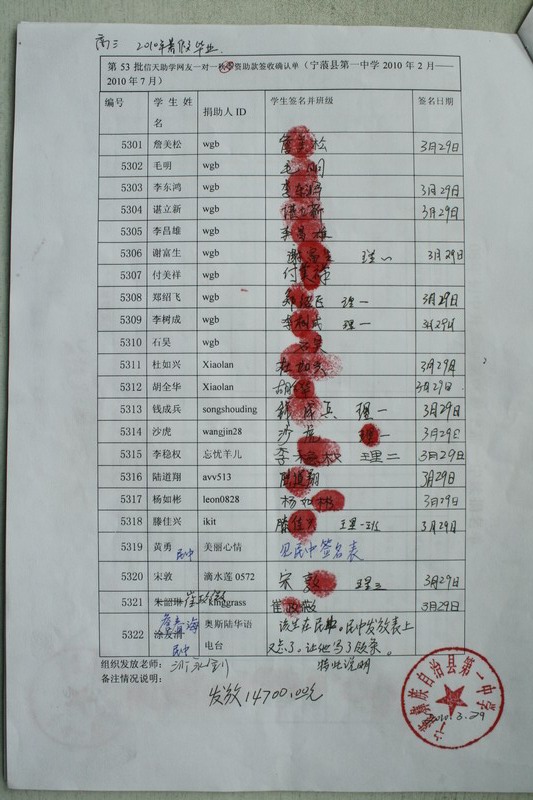 高三 2010年暑假毕业
第 53 批信天助学网友一对一 资助款签收确认单（宁蒗县第一中学 2010 年 2 月——
2010 年 7 月）
编号 学 生 姓名 捐助人 ID 学生签名并班级 签名日期
5301 詹美松 wgb 詹美松 3月29日
5302 毛明 wgb 毛明
5303 李东鸿 wgb 李东鸿 3月29日
5304 谌立新 wgb 谌立新 3月29日
5305 李昌雄 wgb 李昌雄
5306 谢富生 wgb 谢富生 理一 3月29日
5307 付美祥 wgb 付美祥
5308 郑绍飞 wgb 郑绍飞 理一 3月29日
5309 李树成 wgb 李树成 理一 3月29日
5310 石昊 wgb 石昊
5311 杜如兴 Xiaolan 杜如兴 3月29日
5312 胡全华 Xiaolan 胡全华 3月29日
5313 钱成兵 songshouding 钱成兵 理一 3月29日
5314 沙虎 wangjin28 沙虎 理一 3月29日
5315 李稳权 忘忧羊儿 李稳权 理二 3月29日
5316 陆道翔 avv513 陆道翔 3月29日
5317 杨如彬 leon0828 杨如彬 3月29日
5318 滕佳兴 ikit 滕佳兴 理一班 3月29日
5319 黄勇 民中 美丽心情 见民中签名表
5320 宋敦 滴水莲 0572 宋敦 理三 3月29日
5321 朱韶琳 崔政薇 kinggrass 崔政薇 3月29日
5322 涂发清 海 民中 奥斯陆华语电台 该生在民中。民中发放表上
又忘了，让他写了收条。
组织发放老师： 特此说明
备注情况说明：
发放14700.00元
宁蒗彝族自治县第一中学
2010.3.29